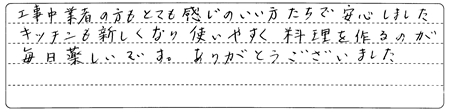 工事中業者の方もとても感じのいい方たちで安心しました
キッチンも新しくなり使いやすく料理を作るのが
毎日楽しいです。ありがとうございました